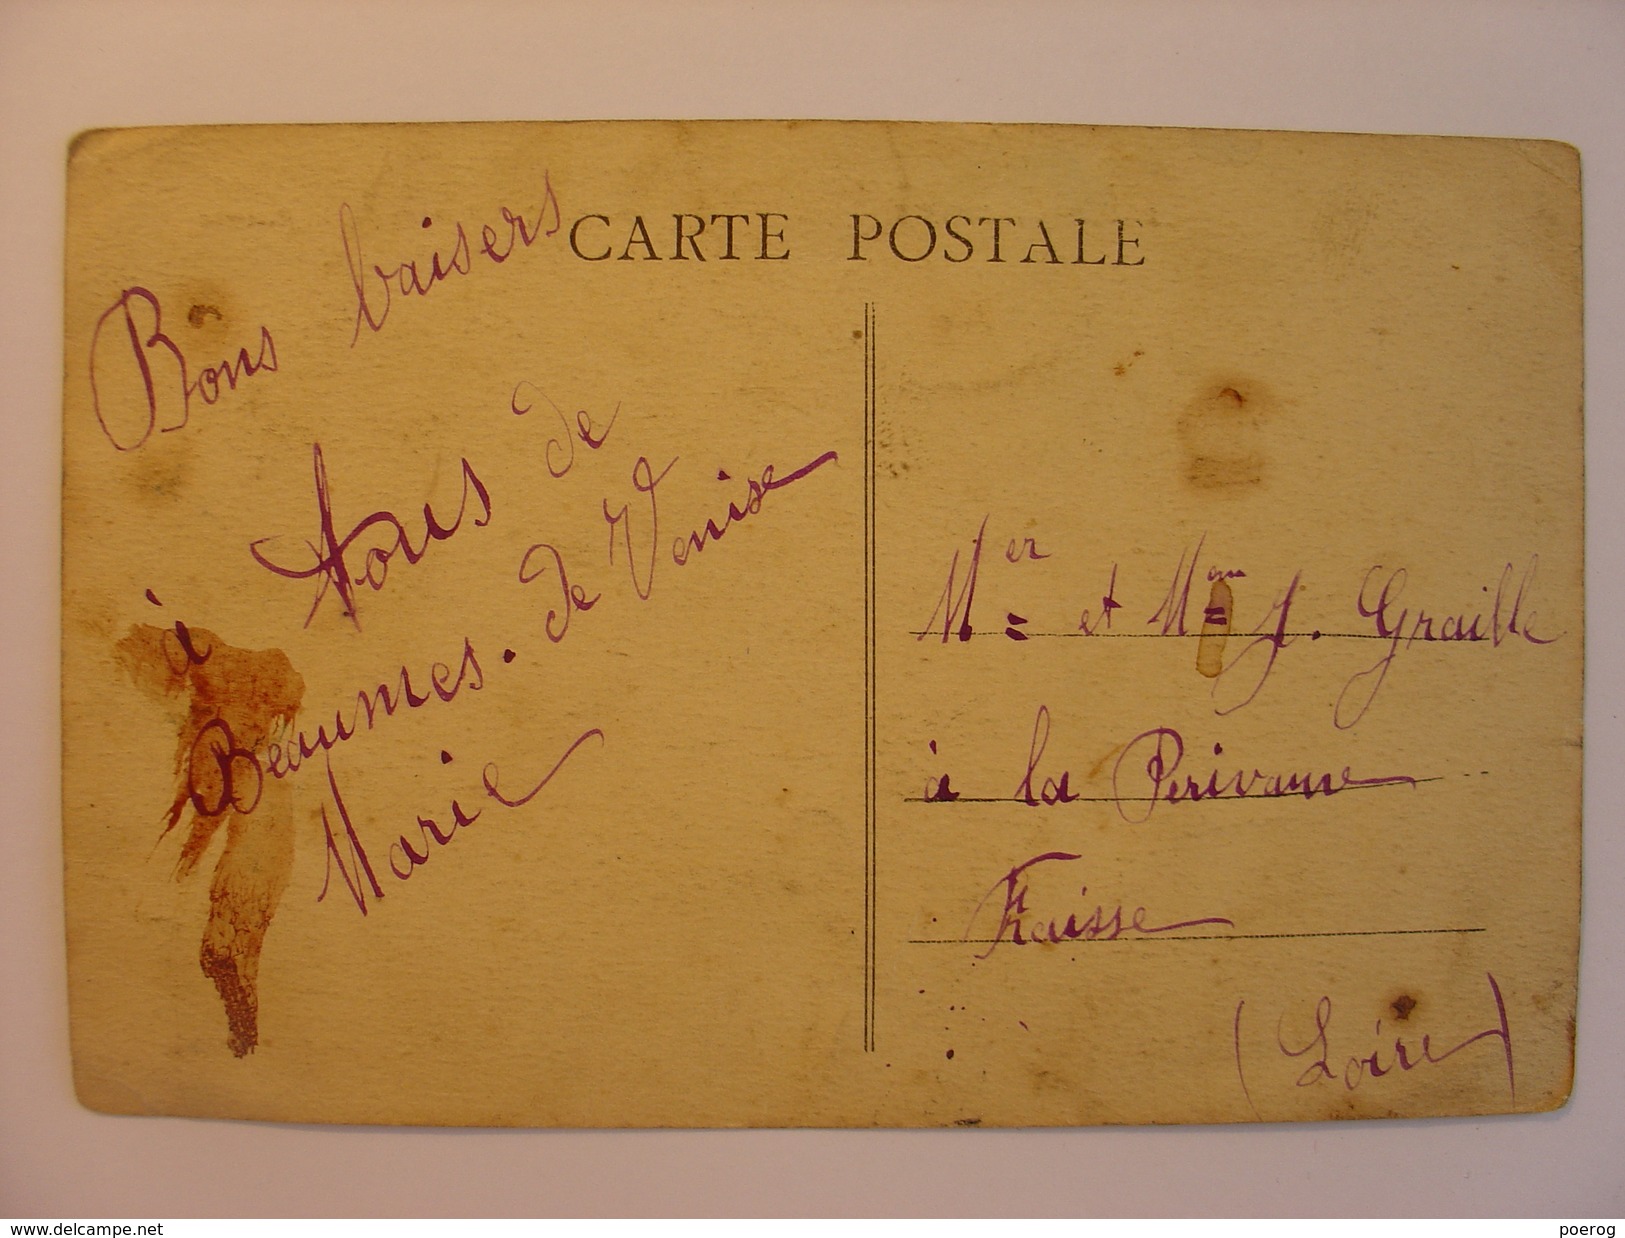 CARTE POSTALE
Bons baisers
à tous de
Beaumes-de Venise
Marie
Mer et Mme J. Graille
à la Perivaure
Fraisse
(Loire)
www.delcampe.net
poerog